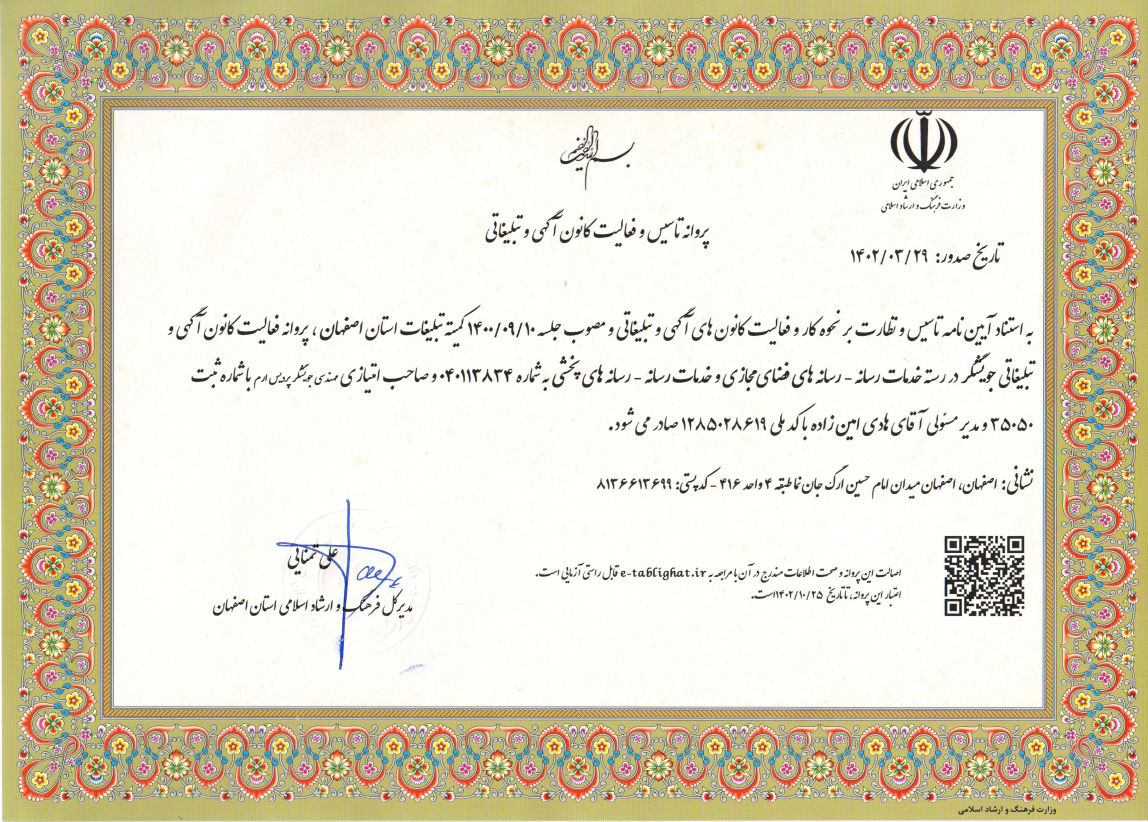 بسم الله الرحمن الرحیم
جمهوری اسلامی ایران
وزارت فرهنگ و ارشاد اسلامی
پروانه تاسیس و فعالیت کانون آگهی و تبلیغاتی
تاریخ صدور: ۱۴۰۲/۰۳/۲۹
به استناد آیین نامه تاسیس و نظارت بر نحوه کار و فعالیت کانون های آگهی و تبلیغاتی و مصوب جلسه ۱۴۰۰/۰۹/۱۰ کمیته تبلیغات استان اصفهان ، پروانه فعالیت کانون آگهی و
تبلیغاتی جویشگر در رسته خدمات رسانه - رسانه های فضای مجازی و خدمات رسانه - رسانه های پخشی به شماره ۰۴۰۱۱۳۸۳۴ و صاحب امتیازی مهندسی جویشگر پردیس ارم با شماره ثبت
۳۵۰۵۰ و مدیر مسئولی آقای هادی امین زاده با کد ملی ۱۲۸۵۰۲۸۶۱۹ صادر می شود.
نشانی: اصفهان، اصفهان میدان امام حسین ارگ جهان نما طبقه ۴ واحد ۴۱۶ - کد پستی: ۸۱۳۶۶۱۳۶۹۹
اصالت این پروانه و صحت اطلاعات مندرج در آن با مراجعه به e-tablighat.ir قابل راستی آزمایی است.
اعتبار این پروانه، تا تاریخ ۱۴۰۲/۱۰/۲۵ است.
علی تمنایی
مدیرکل فرهنگ و ارشاد اسلامی استان اصفهان
وزارت فرهنگ و ارشاد اسلامی